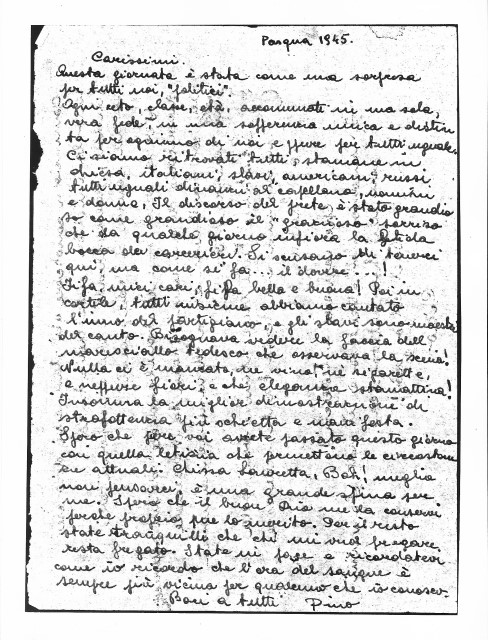 Pasqua 1945.
Carissimi.
Questa giornata è stata come una sorpresa
per tutti noi, "politici".
Ogni ceto, classe, età, accomunati in una sola,
vera fede, in una sofferenza unica e distin
ta per ognuno di noi e pure per tutti uguale.
Ci siamo ritrovati tutti, stamane in
chiesa, italiani, slavi, americani, russi
tutti uguali dinanzi al capellano, uomini
e donne, Il discorso del prete è stato grandio
so come grandioso il "grazioso" sorriso
che da qualche giorno infiora la
bocca dei carcerieri. Si scusano di tenerci
qui, ma come si fa... il dovere...!
Fifa, miei cari, fifa bella e buona! Poi in
cortile, tutti insieme abbiamo cantato
l'inno del partigiano, e gli slavi sono maestri
del canto. Bisognava vedere la faccia del
maresciallo tedesco che osservava la scena!
Nulla ci è mancato, ne vino, ne sigarette,
e neppure fiori, e che eleganza stamattina!
Insomma la miglior dimostrazione di
strafottenza più schietta e manifesta.
Spero che pure voi avrete passato questo giorno
con quella letizia che permettono le circostanze
attuali. Chissà Lauretta, Bah! meglio
non pensarci, è una grande spina per
me. Spero che il buon Dio me la conservi
perchè proprio, me lo merito. Per il resto
state tranquilli che chi mi vuol fregare
resta fregato. State in pace e ricordatevi
come io ricordo che l'ora del sangue è
sempre più vicina per qualcuno che io conosco.
Baci a tutti Pino